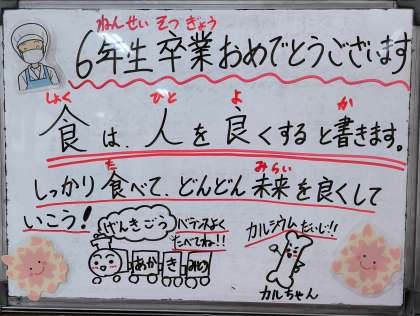 ねんせい そつ ぎょう
6年生卒業おめでとうございます
しょく ひと よ か
食は、人を良くすると書きます。
た みらい
しっかり食べて、どんどん未来を良くして
いこう！
げんきごう
バランスよく
たべてね!!
あか き みどり
カルシウムだいじ!!
カルちゃん